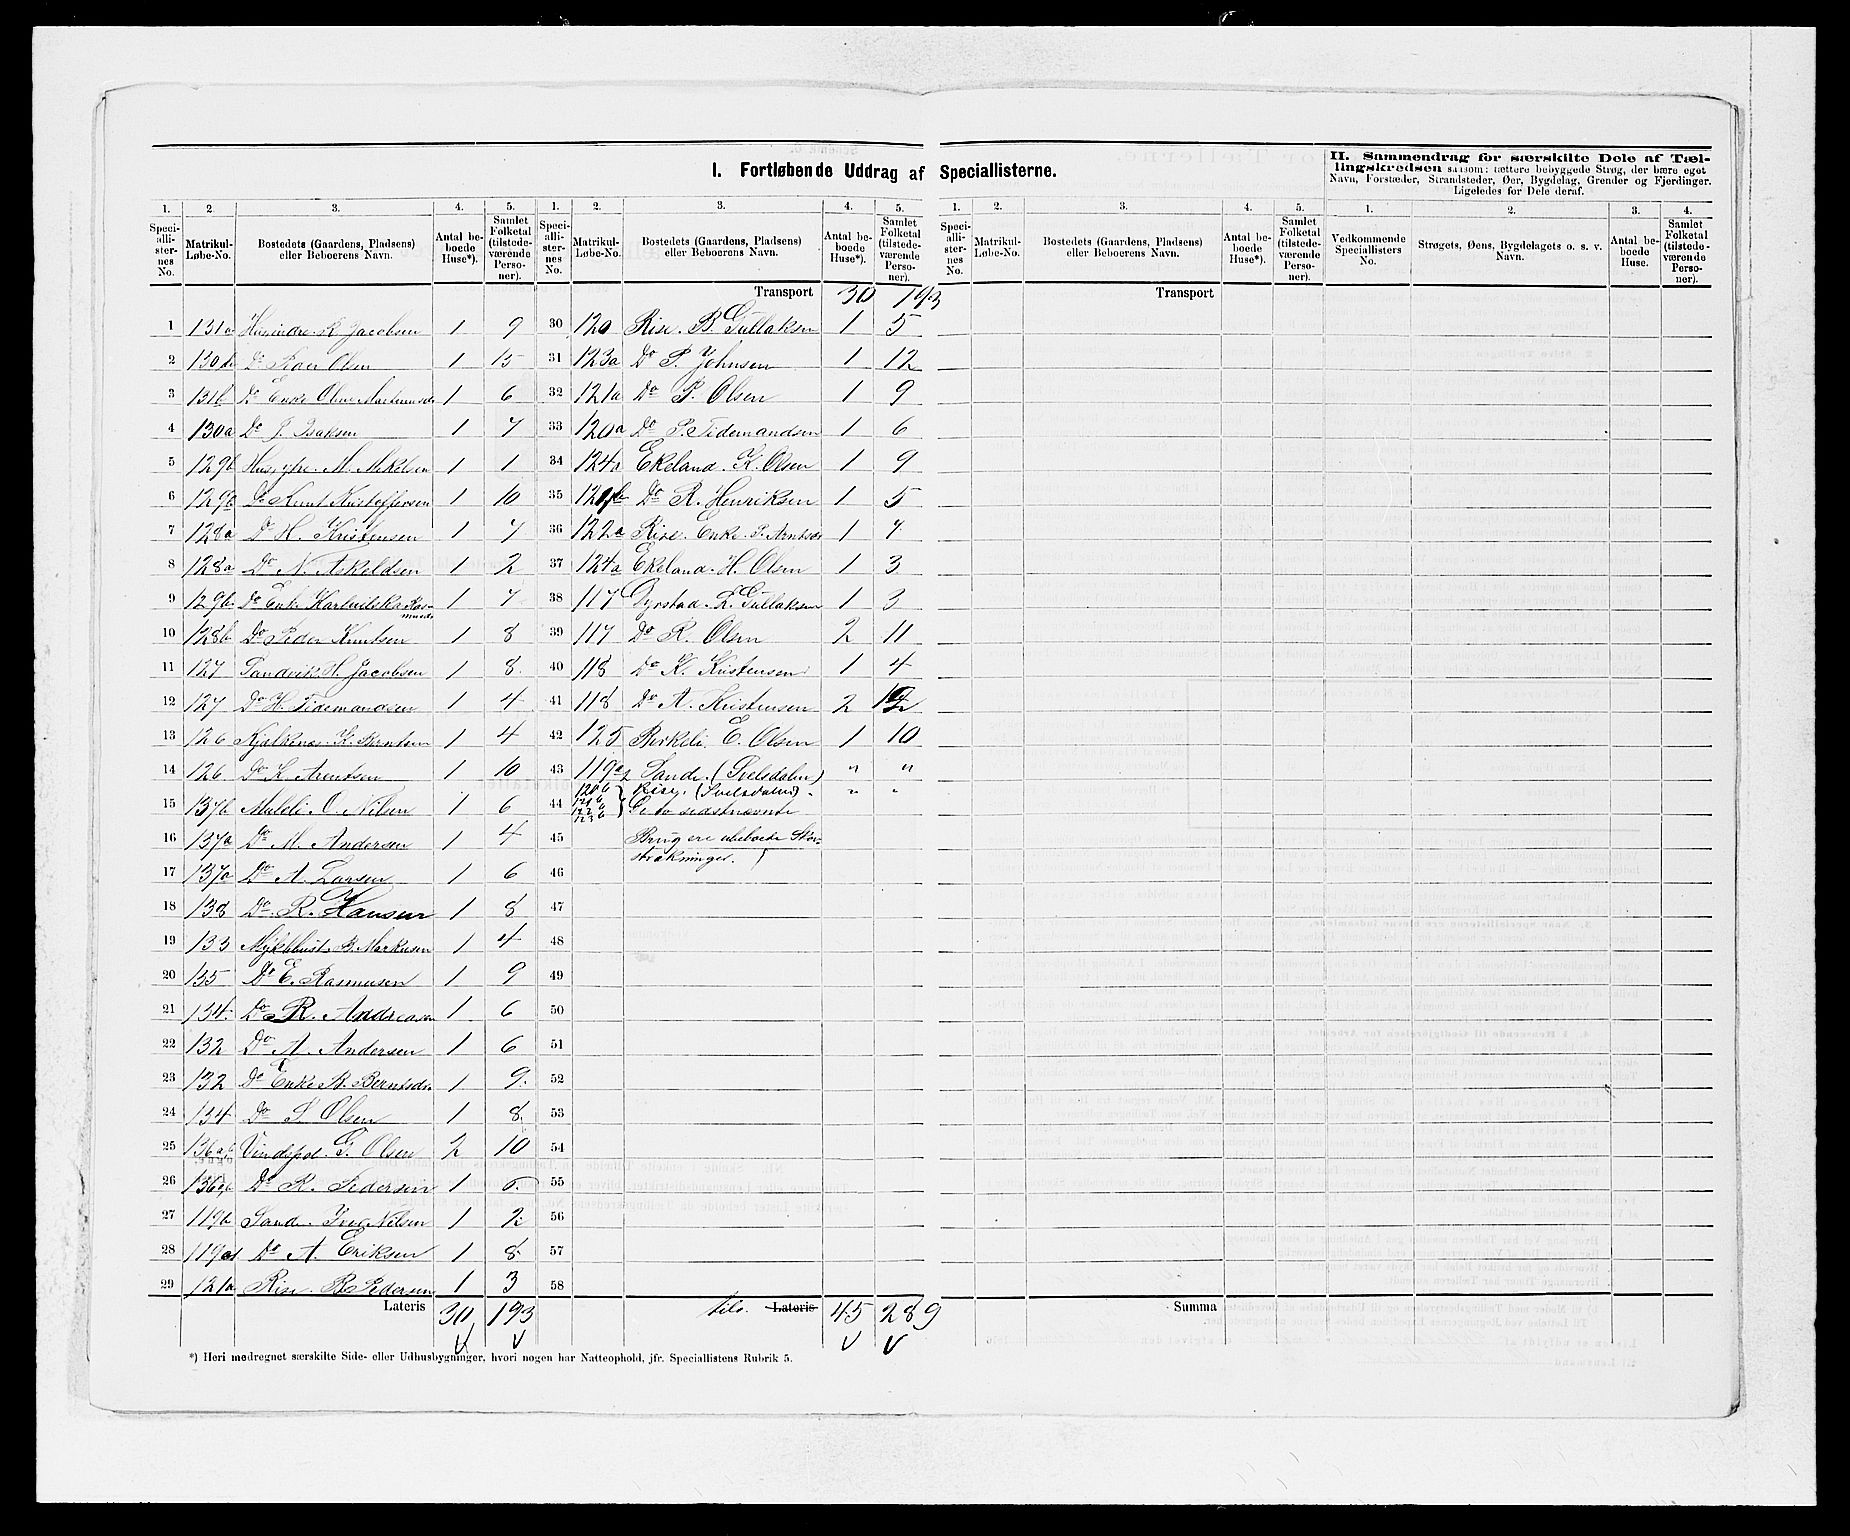 I. Fortløbende Uddrag af Speciallisterne.
II. Sammendrag for særskilte Dele af Tællingskredsen saasom: tættere bebyggede Strøg, der bære eget
Navn, Forstæder, Strandsteder, Øer, Bygdelag, Grender og Fjerdinger.
Ligeledes for Dele deraf.
1. 2. 3. 4. 5. 1. 2. 3. 4. 5. 1. 2. 3. 4. 5. 1. 2. 3. 4.
Speciallisternes No. Matrikul-Løbe-No. Bostedets (Gaardens, Pladsens) eller Beboerens Navn. Antal beboede Huse*). Samlet Folketal (tilstedeværende Personer).
Speciallisternes No. Matrikul-Løbe-No. Bostedets (Gaardens, Pladsens) eller Beboerens Navn. Antal beboede Huse*). Samlet Folketal (tilstedeværende Personer).
Speciallisternes No. Matrikul-Løbe-No. Bostedets (Gaardens, Pladsens) eller Beboerens Navn. Antal beboede Huse*). Samlet Folketal (tilstedeværende Personer).
Vedkommende Speciallisters No. Strøgets, Øens, Bygdelagets o. s. v. Navn. Antal beboede Huse. Samlet Folketal (tilstedeværende Personer).
1 131a R Jacobsen 1 9
2 130b Do Roer Olsen 1 15
3 131b Do Enke Oline 1 6
4 130a Do J. Isaksen 1 7
5 129b Husytre. M. Mikelsen 1 1
6 129b Do Knut Kristoffersen 1 10
7 128a Do H. Kristensen 1 7
8 128a Do N. Askeldsen 1 2
9 129b Do Enke 1 7
10 128b Do Peder Knutsen 1 8
11 127 Sandvik H. Jacobsen 1 8
12 127 Do H. Tidemandsen 1 4
13 126 K. Berntsen 1 4
14 126 Do K. Arentsen 1 10
15 137b Muleli O. Nilsen 1 6
16 137a Do M. Andersen 1 4
17 137a Do A. Larsen 1 6
18 138 Do R. Hansen 1 8
19 133 Myklebust B. Markusen 1 4
20 135 Do E. Rasmusen 1 9
21 134 Do R. Andreasen 1 6
22 132 Do A. Andersen 1 6
23 132 Do Enke M. Berntsdr. 1 9
24 134 Do S. Olsen 1 8
25 136a,b Vindspol G. Olsen 2 10
26 136a,b Do R. Pedersen 1 5
27 119b Sande Iver Nilsen 1 2
28 119a1 Do A. Eriksen 1 8
29 121a Rise B Pedersen 1 3
Lateris 30 193
Transport 30 193
30 120 Rise. B. Gullaksen 1 5
31 123a Do P. Johnsen 1 12
32 121a Do P. Olsen 1 9
33 120a Do P. Tidemandsen 1 6
34 124a Ekeland. K. Olsen 1 9
35 Do R. Henriksen 1 5
36 122a Rise. Enke. P. Arntsdr 1 7
37 124a Ekeland. H. Olsen 1 3
38 117 Dyrstad. L. Gullaksen 1 3
39 117 Do R. Olsen 2 11
40 118 Do K. Kristensen 1 4
41 118 Do A. Kristensen 2 12
42 125 Birkeli E. Olsen 1 10
43 119a2 Sande. (Svelsdalen) " "
44 120b 121b 122b 123b } Rise. (Svelsdalen) " "
De to sidstnævnte
45 Brug ere ubeboede
strækninger.
46
47
48
49
50
51
52
53
54
55
56
57
58
tils. Lateris 45 289
Transport
Summa
*) Heri medregnet særskilte Side- eller Udhusbygninger, hvori nogen har Natteophold, jfr. Speciallistens Rubrik 5.